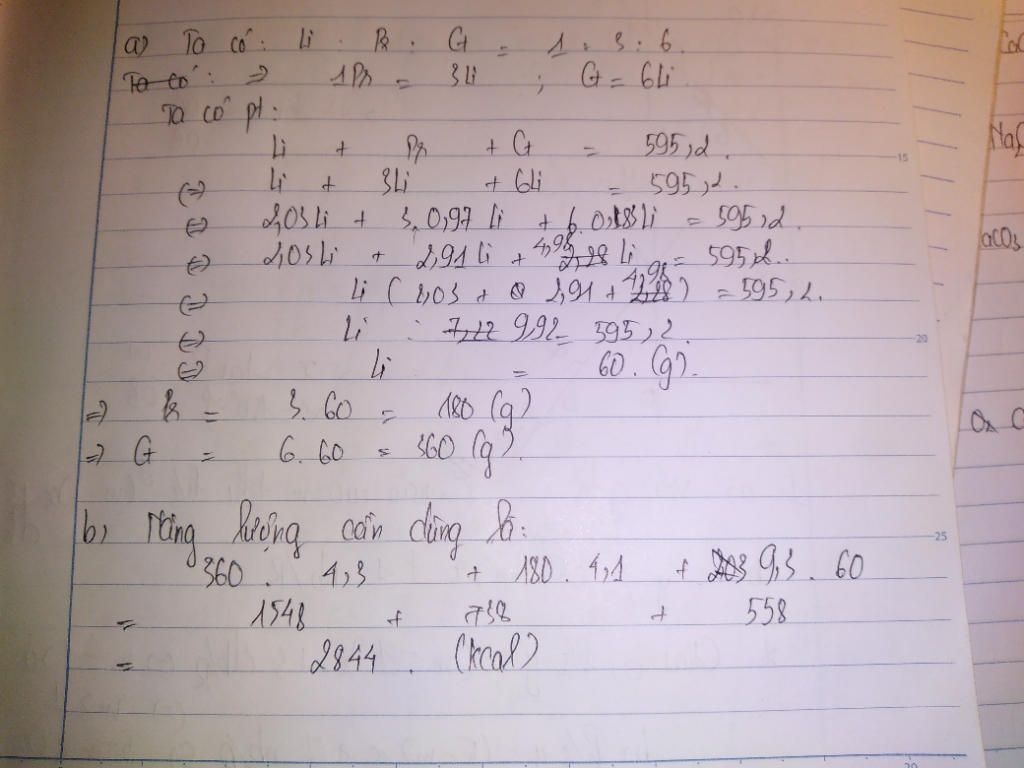 a) Ta có: Li : Pr : G = 1 : 3 : 6.
Ta có: => 1Pr = 3Li ; G = 6Li
Ta có pt:
Li + Pr + G = 595,2.
(=) Li + 3Li + 6Li = 595,2.
(=) 2,03Li + 3.0,97 Li + 6.0,83Li = 595,2.
(=) 2,03Li + 2,91Li + 4,98 Li = 595,2.
(=) Li ( 2,03 + 2,91 + 4,98 ) = 595,2.
(=) Li : 7,22 9,92 = 595,2.
(=) Li = 60. (g).
=> Pr = 3.60 = 180 (g)
=> G = 6.60 = 360 (g).
b) Năng lượng cần dùng là:
360 . 4,3 + 180 . 4,1 + 9,3 . 60
= 1548 + 738 + 558
= 2844 . (kcal)
15
20
25
CaC
NaC
aCO3